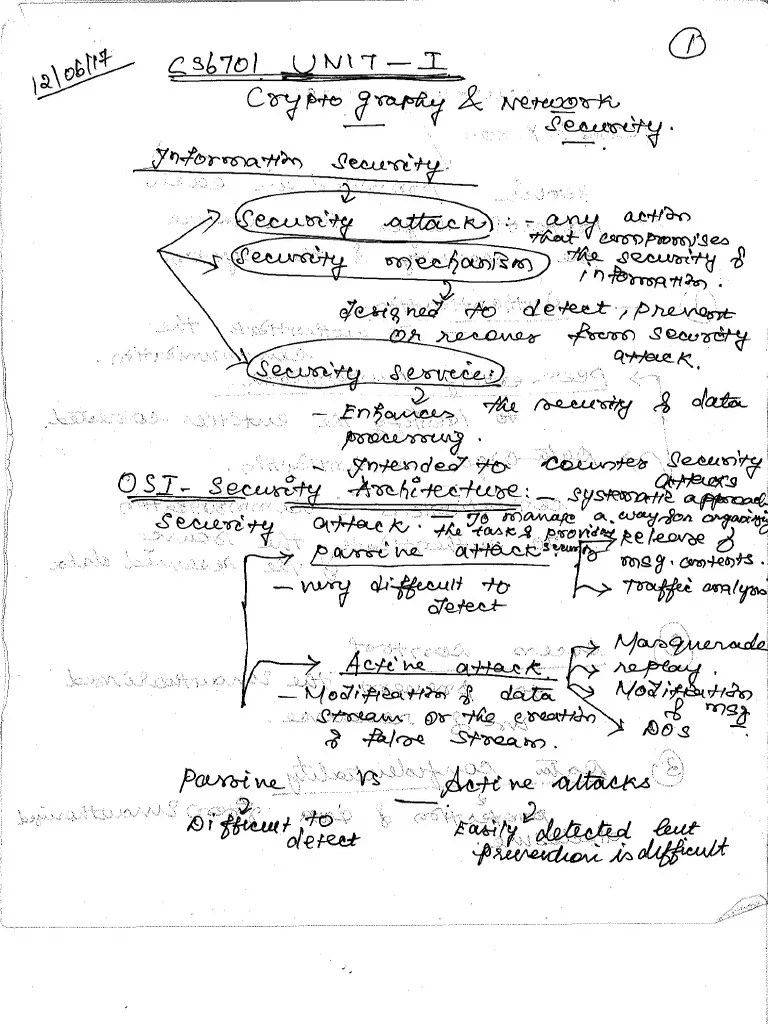 1
12/06/17
CS6701 UNIT - I
Cryptography & Network
Security.
Information Security.
Security attack : - any action
that compromises
the security of
information.
Security mechanism
designed to detect, prevent
or recover from security
attack.
Security service:
- Enhances the security of data
processing.
- Intended to counter security
attacks
OSI - Security Architecture: - systematic approach
- To manage a way for organizing
the task of providing
security
Security attack.
Passive attack.
- very difficult to
detect
Release of
msg. contents.
Traffic analysis
Active attack
- Modification of data
stream or the creation
of false stream.
Masquerade
replay.
Modification
of msg.
DOS
Passive vs Active attacks
Difficult to
detect
Easily detected but
prevention is difficult